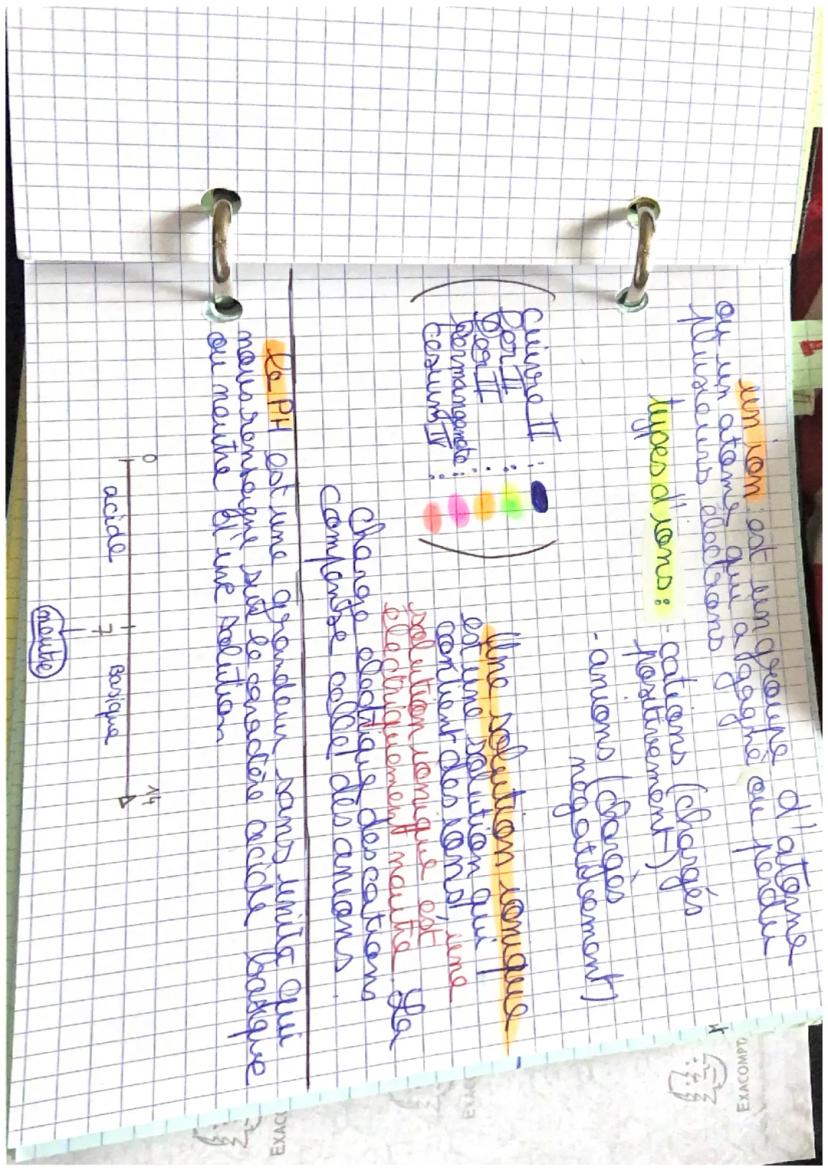 un ion est un groupe d'atome
ou un atome qui a gagné ou perdu
plusieurs électrons
types d'ions : - cations (chargés
positivement)
- anions (chargés
négativement)
Cuivre II :
Fer II :
Fer III :
Permanganate :
Une solution ionique
est une solution qui
contient des ions, une
solution ionique est
électriquement neutre. La
charge électrique des cations
compense celle des anions.
Le PH est une grandeur sans unité qui
nous renseigne sur le caractère acide basique
ou neutre d'une solution
0 7 14
acide basique
neutre
EXACOMPT
EXAC
EXAC